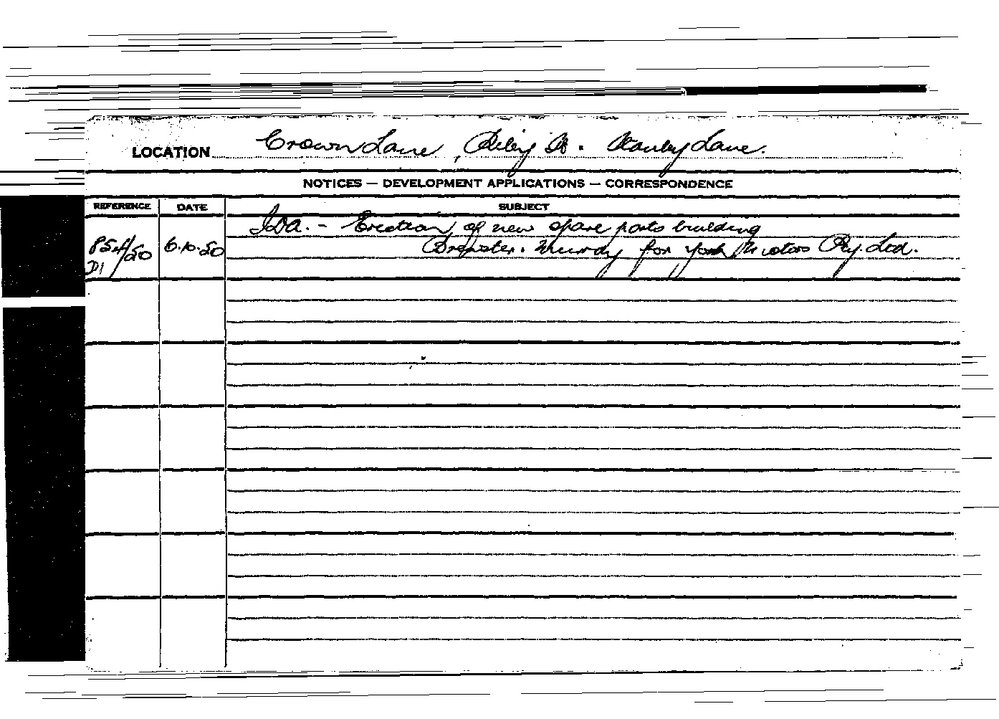 LOCATION Crown Lane, Riley St. Stanley Lane.
NOTICES — DEVELOPMENT APPLICATIONS — CORRESPONDENCE
REFERENCE DATE SUBJECT
Erection of new spare parts building
/50 6.10.50 for York Motors Pty. Ltd.
D1